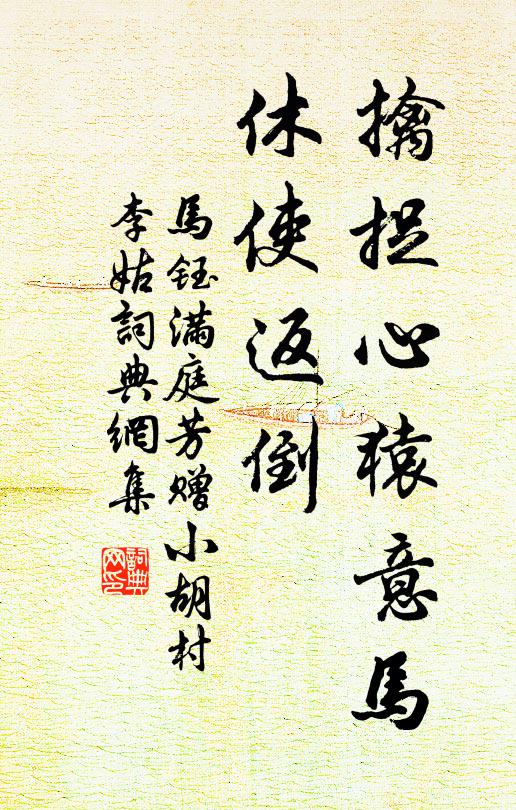 擒捉心猿意馬
休使返倒
馬鈺滿庭芳贈小胡村
李姑詞典網集
詞典網印